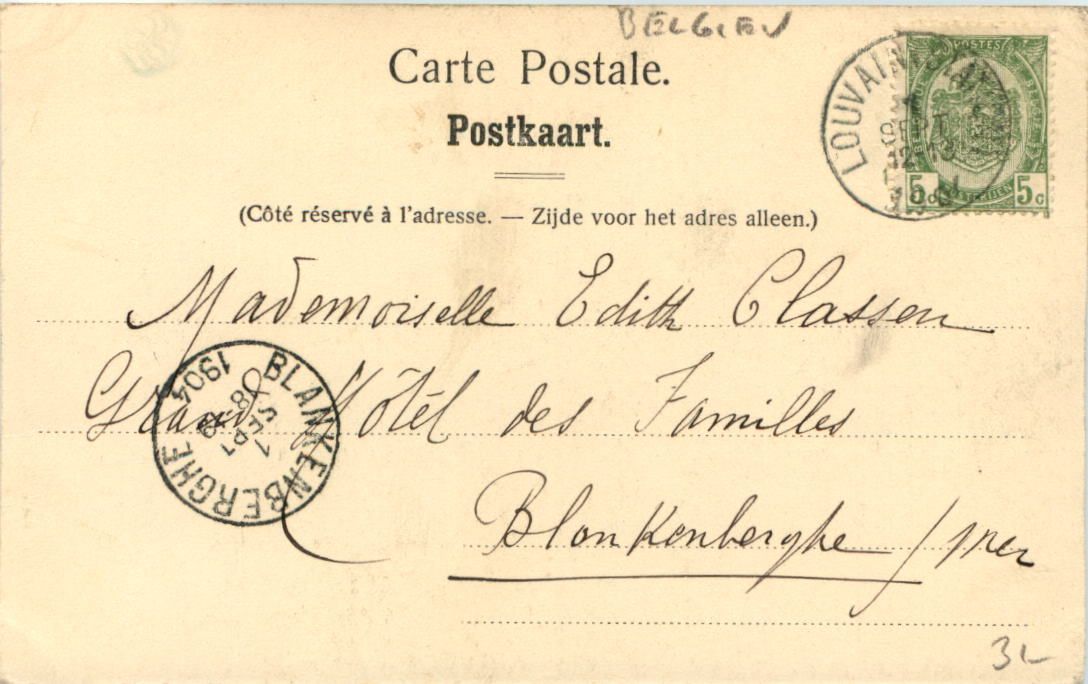 BELGIEN
Carte Postale.
Postkaart.
(Côté réservé à l'adresse. — Zijde voor het adres alleen.)
POSTES
5c 5c
LOUVAIN
SEPT
Mademoiselle Edith Classen
Grand Hôtel des Familles
Blankenberghe /mer
BLANKENBERGHE
1 SEPT
8-9
1904
3L